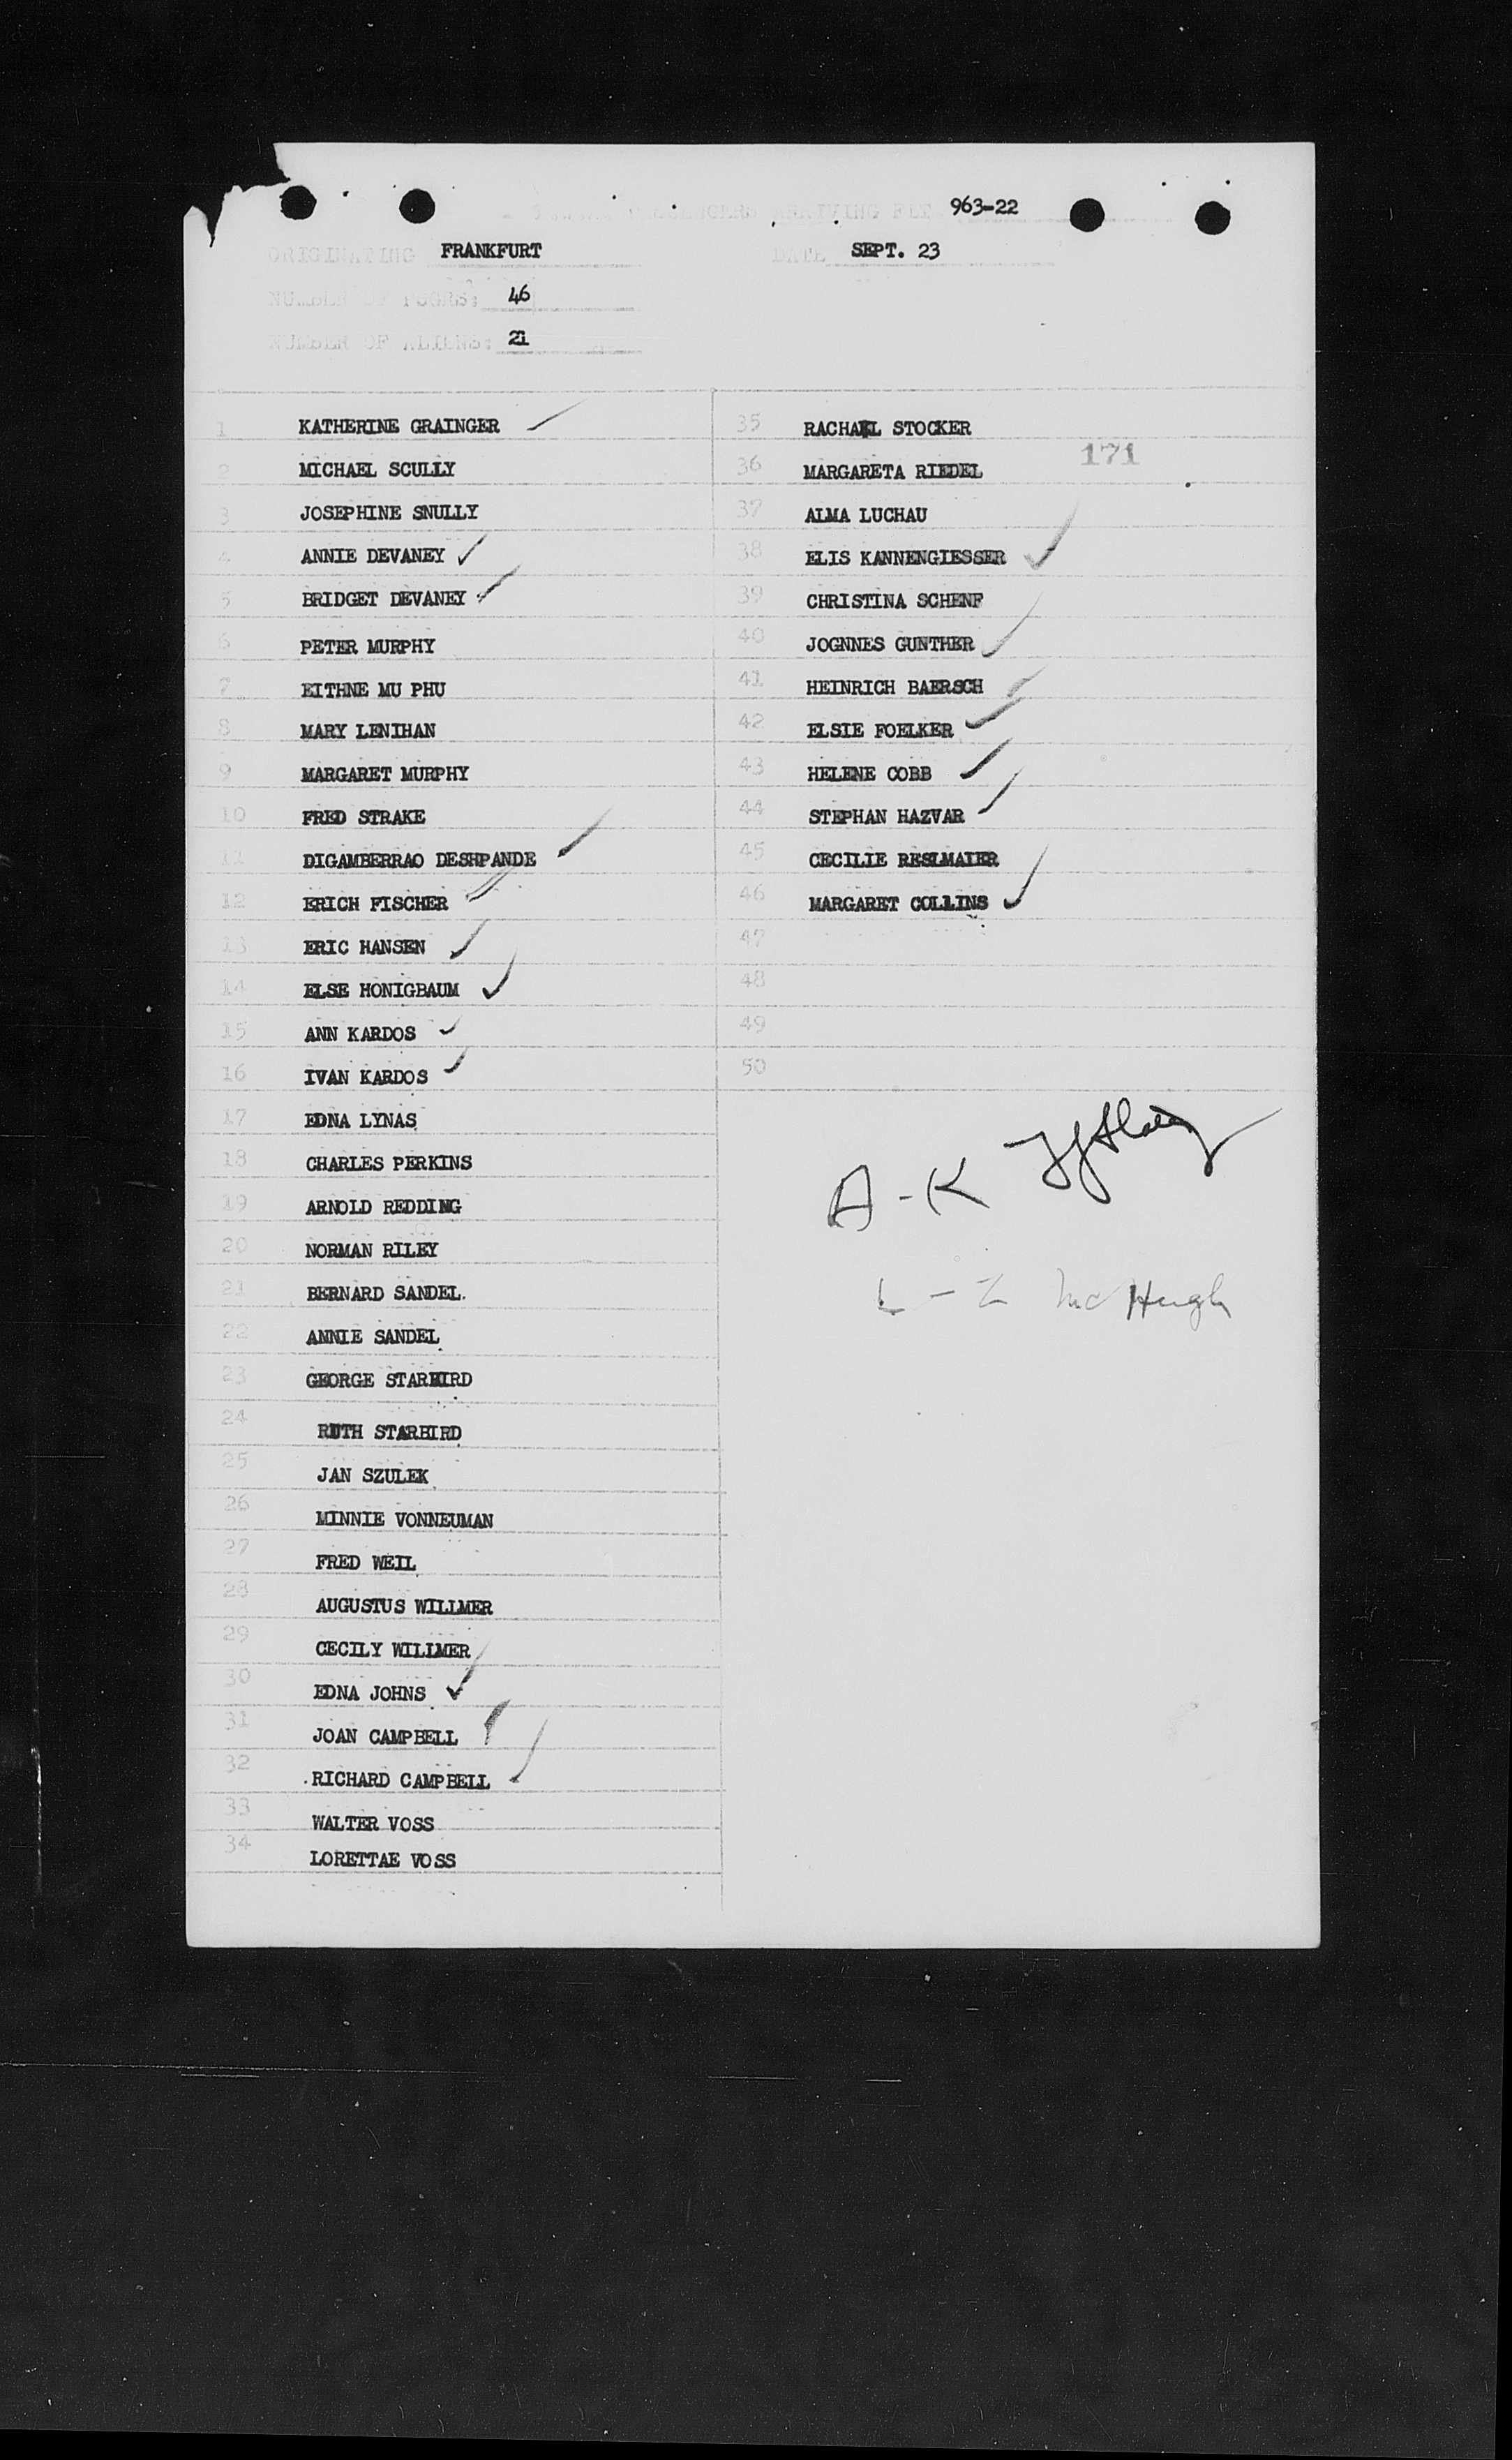 PASSENGERS ARRIVING FLT 963-22
ORIGINATING FRANKFURT DATE SEPT. 23
NUMBER OF PSGRS: 46
NUMBER OF ALIENS: 21
1 KATHERINE GRAINGER
2 MICHAEL SCULLY
3 JOSEPHINE SNULLY
4 ANNIE DEVANEY
5 BRIDGET DEVANEY
6 PETER MURPHY
7 EITHNE MU PHU
8 MARY LENIHAN
9 MARGARET MURPHY
10 FRED STRAKE
11 DIGAMBERRAO DESHPANDE
12 ERICH FISCHER
13 ERIC HANSEN
14 ELSE HONIGBAUM
15 ANN KARDOS
16 IVAN KARDOS
17 EDNA LYNAS
18 CHARLES PERKINS
19 ARNOLD REDDING
20 NORMAN RILEY
21 BERNARD SANDEL.
22 ANNIE SANDEL
23 GEORGE STARBIRD
24 RUTH STARBIRD
25 JAN SZULEK
26 MINNIE VONNEUMAN
27 FRED WEIL
28 AUGUSTUS WILLMER
29 CECILY WILLMER
30 EDNA JOHNS
31 JOAN CAMPBELL
32 .RICHARD CAMPBELL
33 WALTER VOSS
34 LORETTAE VOSS
35 RACHAEL STOCKER
171
36 MARGARETA RIEDEL
37 ALMA LUCHAU
38 ELIS KANNENGIESSER
39 CHRISTINA SCHENF
40 JOGNNES GUNTHER
41 HEINRICH BAERSCH
42 ELSIE FOELKER
43 HELENE COBB
44 STEPHAN HAZVAR
45 CECILIE RESLMAIER
46 MARGARET COLLINS
47
48
49
50
A-K
L-Z McHugh